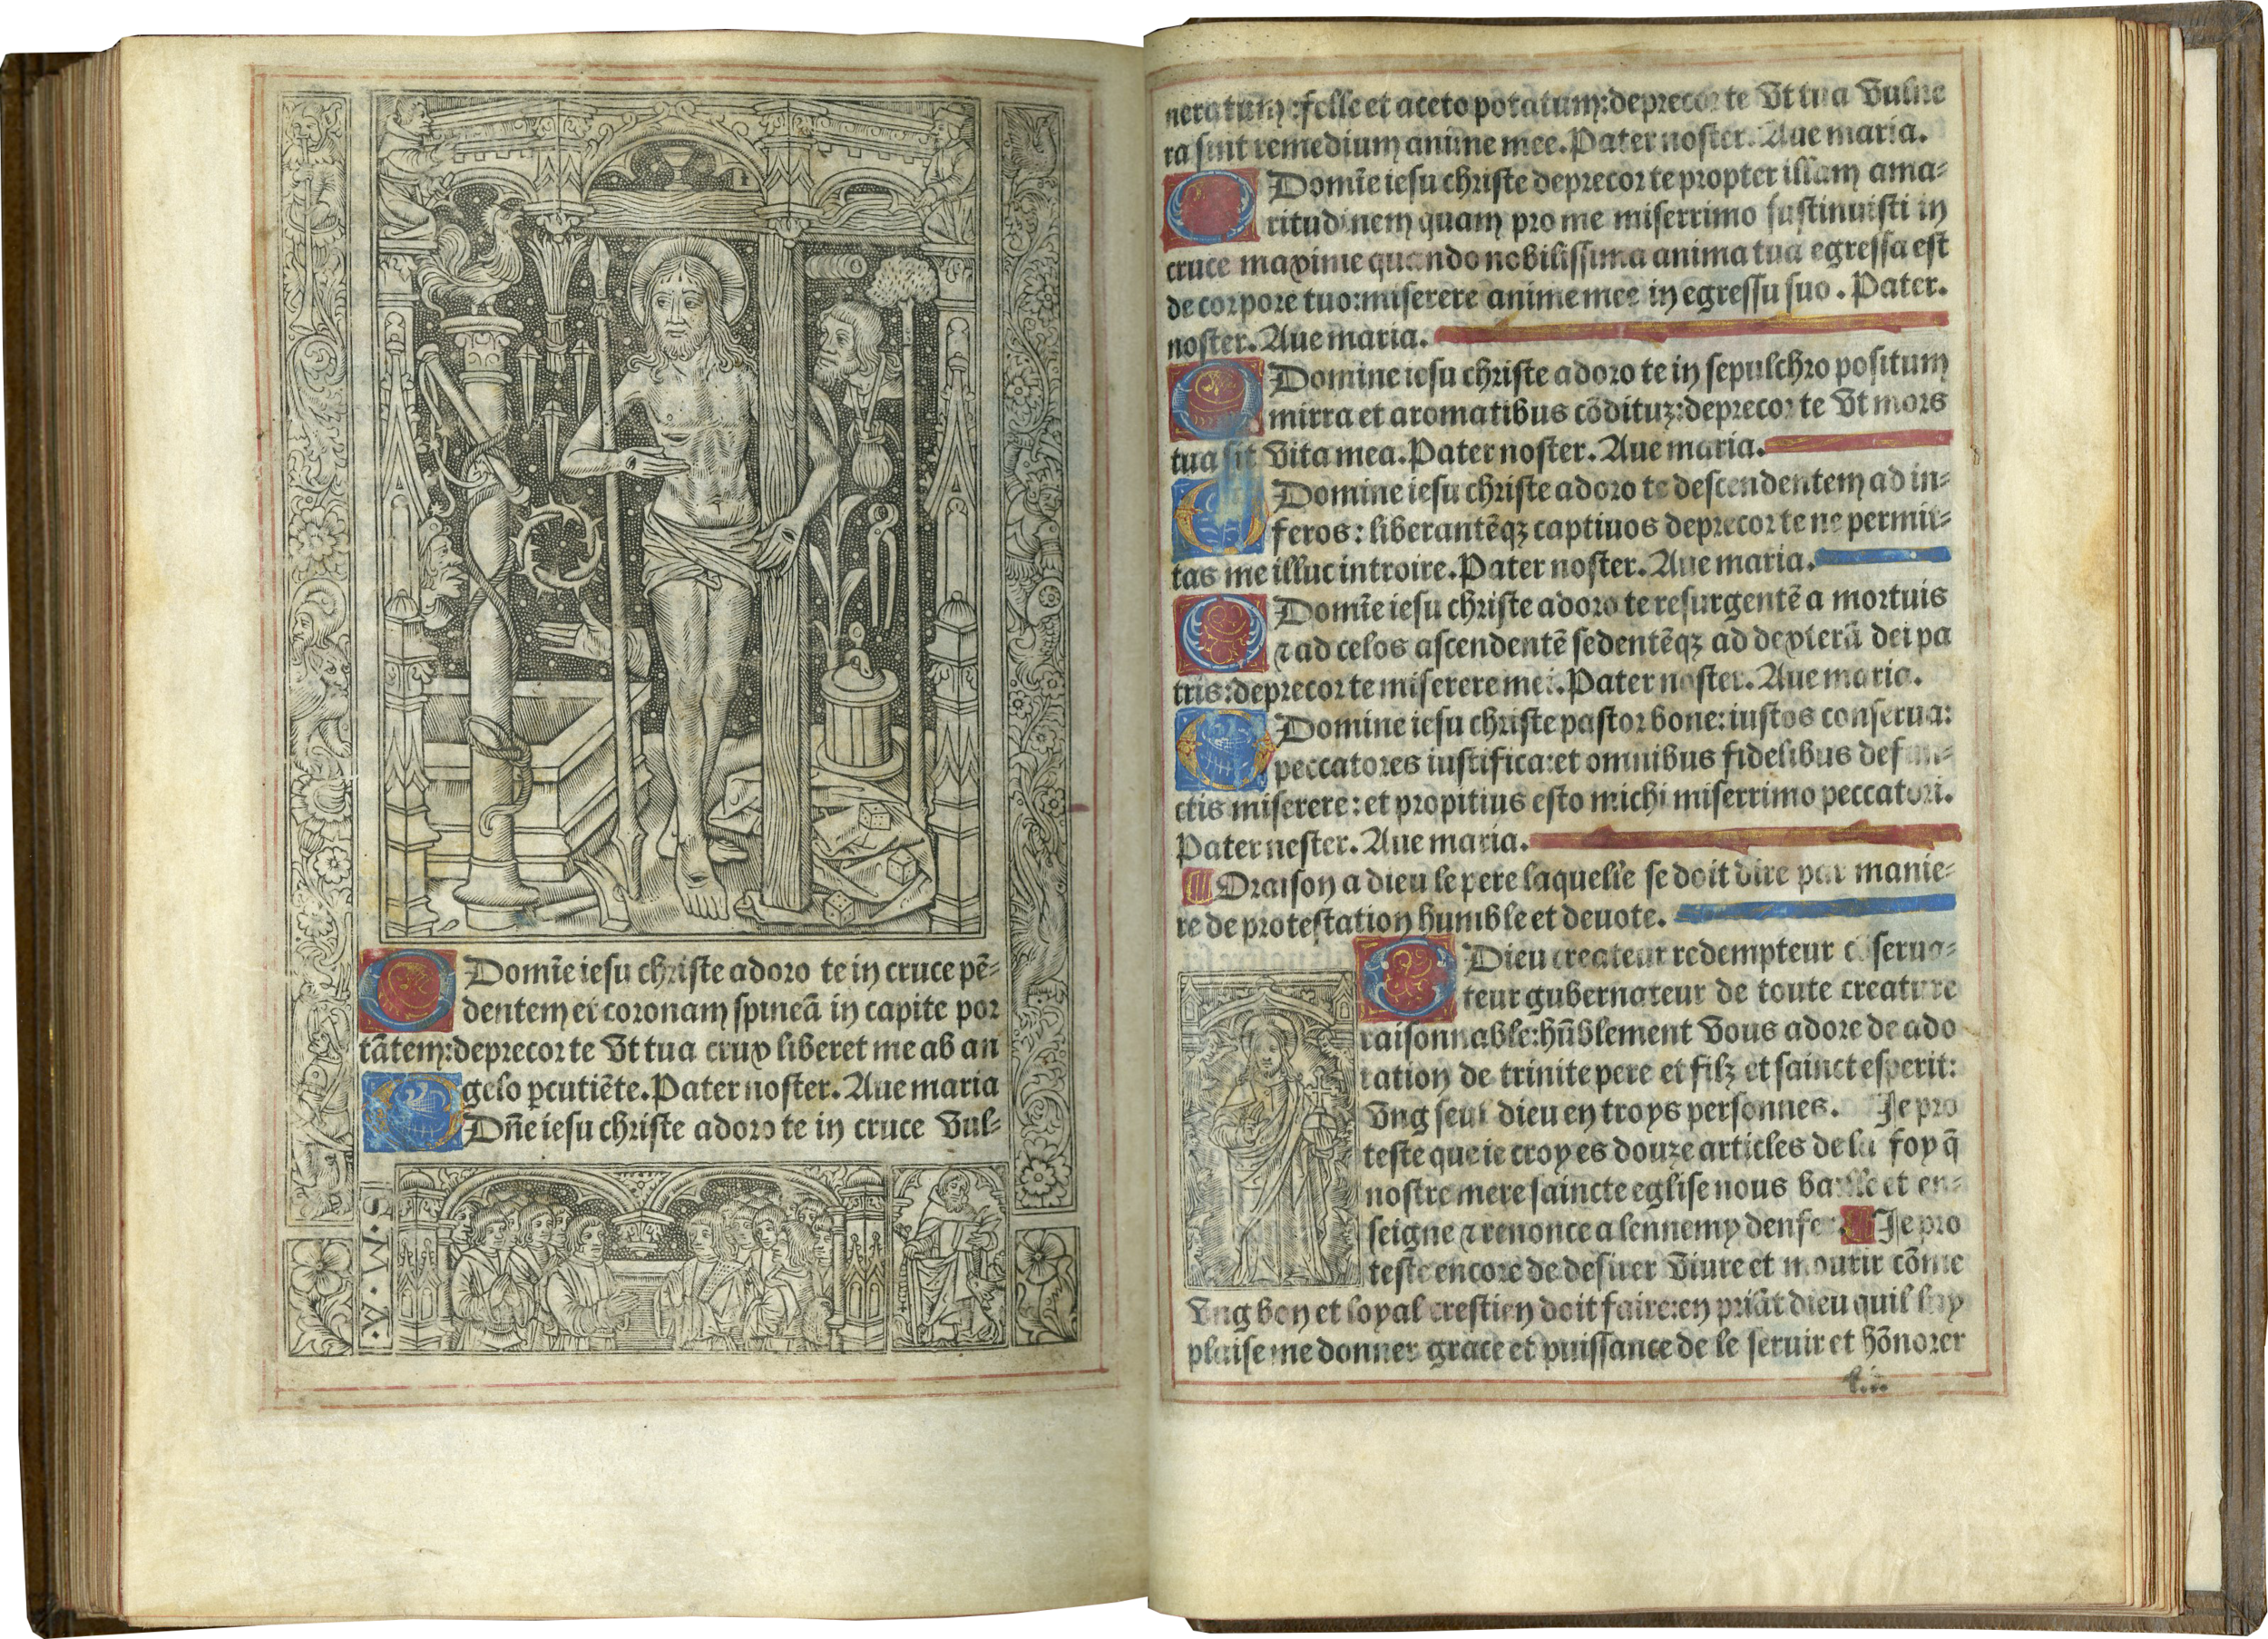 O Domīe iesu christe adoro te in cruce pē-
dentem et coronam spineā in capite por
tātem: deprecor te Vt tua crux liberet me ab an
gelo ꝑcutiēte. Pater noster. Aue maria
O Dn̄e iesu christe adoro te in cruce Vul-
.A.W.M.S.
neratum: felle et aceto potatum: deprecor te Vt tua Vulne
ra sint remedium anime mee. Pater noster. Aue maria.
O Domīe iesu christe deprecor te propter illam ama-
ritudinem quam pro me miserrimo sustinuisti in
cruce maxime quando nobilissima anima tua egressa est
de corpore tuo: miserere anime mee in egressu suo. Pater.
noster. Aue maria.
O Domine iesu christe adoro te in sepulchro positum
mirra et aromatibus cōdituꝫ: deprecor te Vt mors
tua sit Vita mea. Pater noster. Aue maria.
O Domine iesu christe adoro te descendentem ad in-
feros: liberantēqꝫ captiuos deprecor te ne permit-
tas me illuc introire. Pater noster. Aue maria.
O Domīe iesu christe adoro te resurgentē a mortuis
⁊ ad celos ascendentē sedentēqꝫ ad dexterā dei pa
tris: deprecor te miserere mei. Pater noster. Aue maria.
O Domine iesu christe pastor bone: iustos conserua:
peccatores iustifica: et omnibus fidelibus defun-
ctis miserere: et propitius esto michi miserrimo peccatori.
Pater nester. Aue maria.
Oraison a dieu le pere laquelle se doit dire par manie-
re de protestation humble et deuote.
O Dieu createur redempteur cōserua-
teur gubernateur de toute creature
raisonnable: hūblement Vous adore de ado
ration de trinite pere et filz et sainct esperit:
Vng seul dieu en troys personnes. Je pro
teste que ie croy es douze articles de la foy q̄
nostre mere saincte eglise nous baille et en-
seigne ⁊ renonce a lennemy denfer. Je pro
teste encore de desirer Viure et mourir cōme
Vng bon et loyal crestien doit faire: en priāt dieu quil luy
plaise me donner grace et puissance de le seruir et hōnorer
k.i.